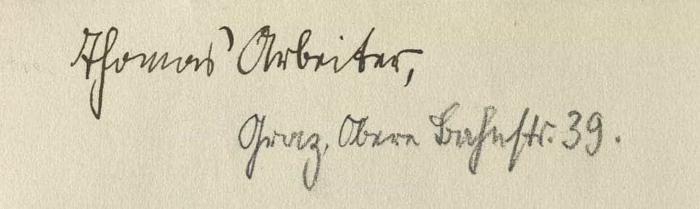 Thomas Arbeiter,
Graz, Obere Bahnstr. 39.